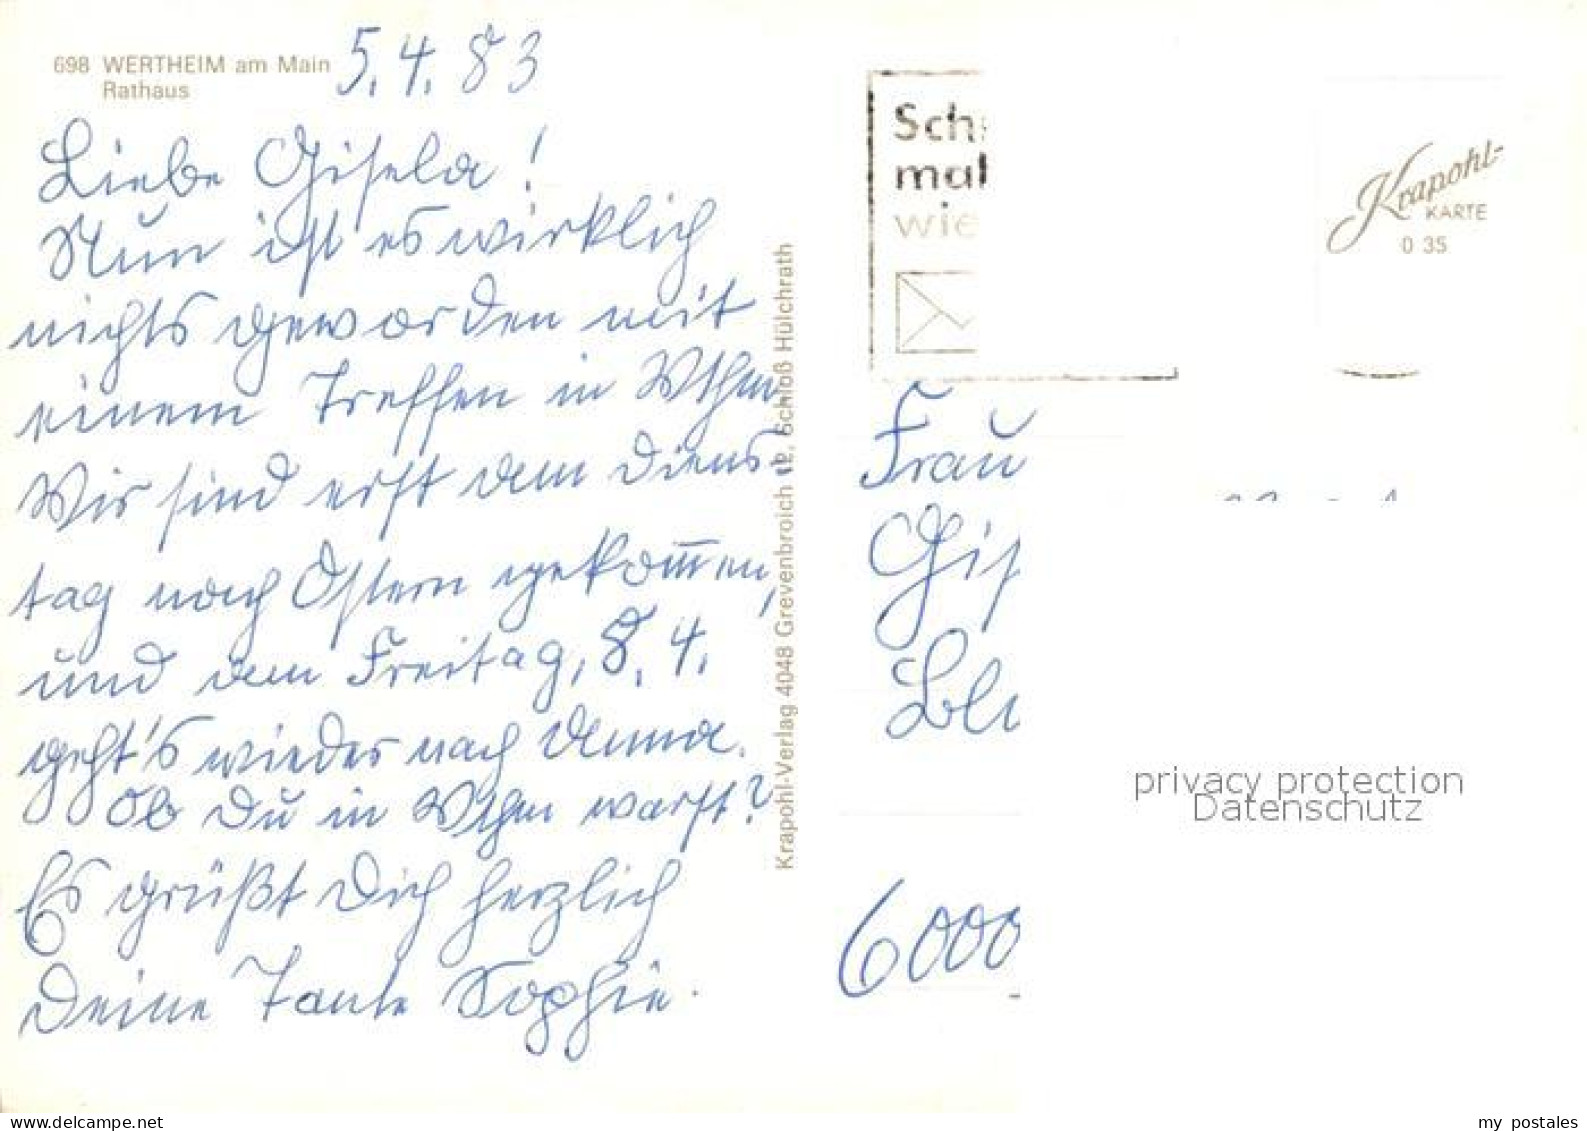 698 WERTHEIM am Main
Rathaus
5.4.83
Liebe Gisela!
Nun ist es wirklich
nichts geworden mit
einem Treffen in Wthm.
Wir sind erst am Diens-
tag nach Ostern gekom̅en,
und am Freitag, 8.4.
geht's wieder nach Unna.
Ob Du in Wthm warst?
Es grüßt Dich herzlich
Deine Tante Sophie.
Krapohl-Verlag 4048 Grevenbroich 12, Schloß Hülchrath
Sch
mal
wie
Krapohl-
KARTE
0 35
Frau
Gis
6000
privacy protection
Datenschutz
my postales